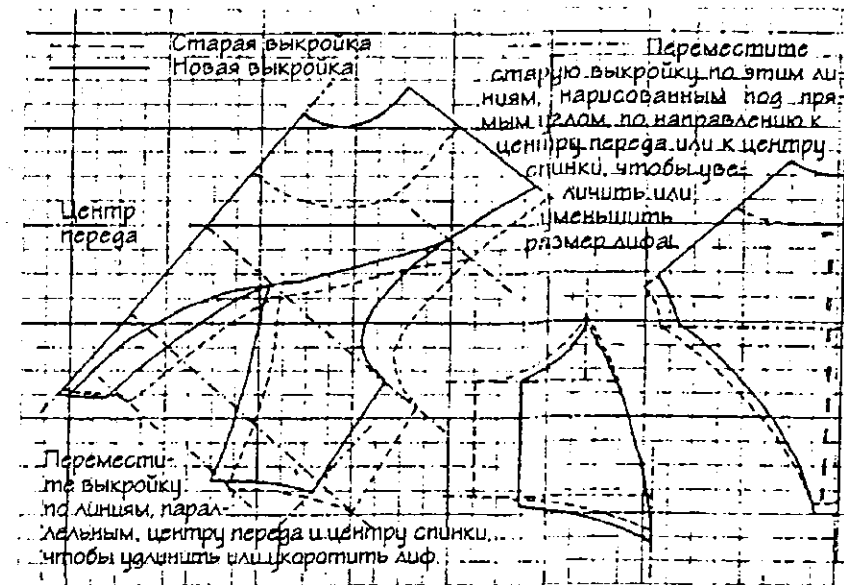 Старая выкройка
Новая выкройка
Переместите
старую выкройку по этим ли-
ниям, нарисованным под пря-
мым углом по направлению к
центру переда или к центру
спинки, чтобы уве-
личить или
уменьшить
размер лифа.
Центр
переда
Перемести-
те выкройку
по линиям, парал-
лельным, центру переда и центру спинки,
чтобы удлинить или укоротить лиф.